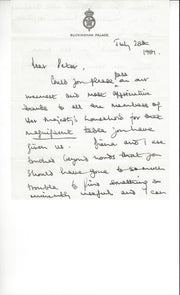 BUCKINGHAM PALACE
July 28th
1981.
Dear Peter,
Could you please pass on our
warmest and most appreciative
thanks to all the members of
Her Majesty's Household for that
magnificent table you have
given us. Diana and I are
touched beyond words that you
should have gone to so much
trouble to find something so
eminently useful and I can